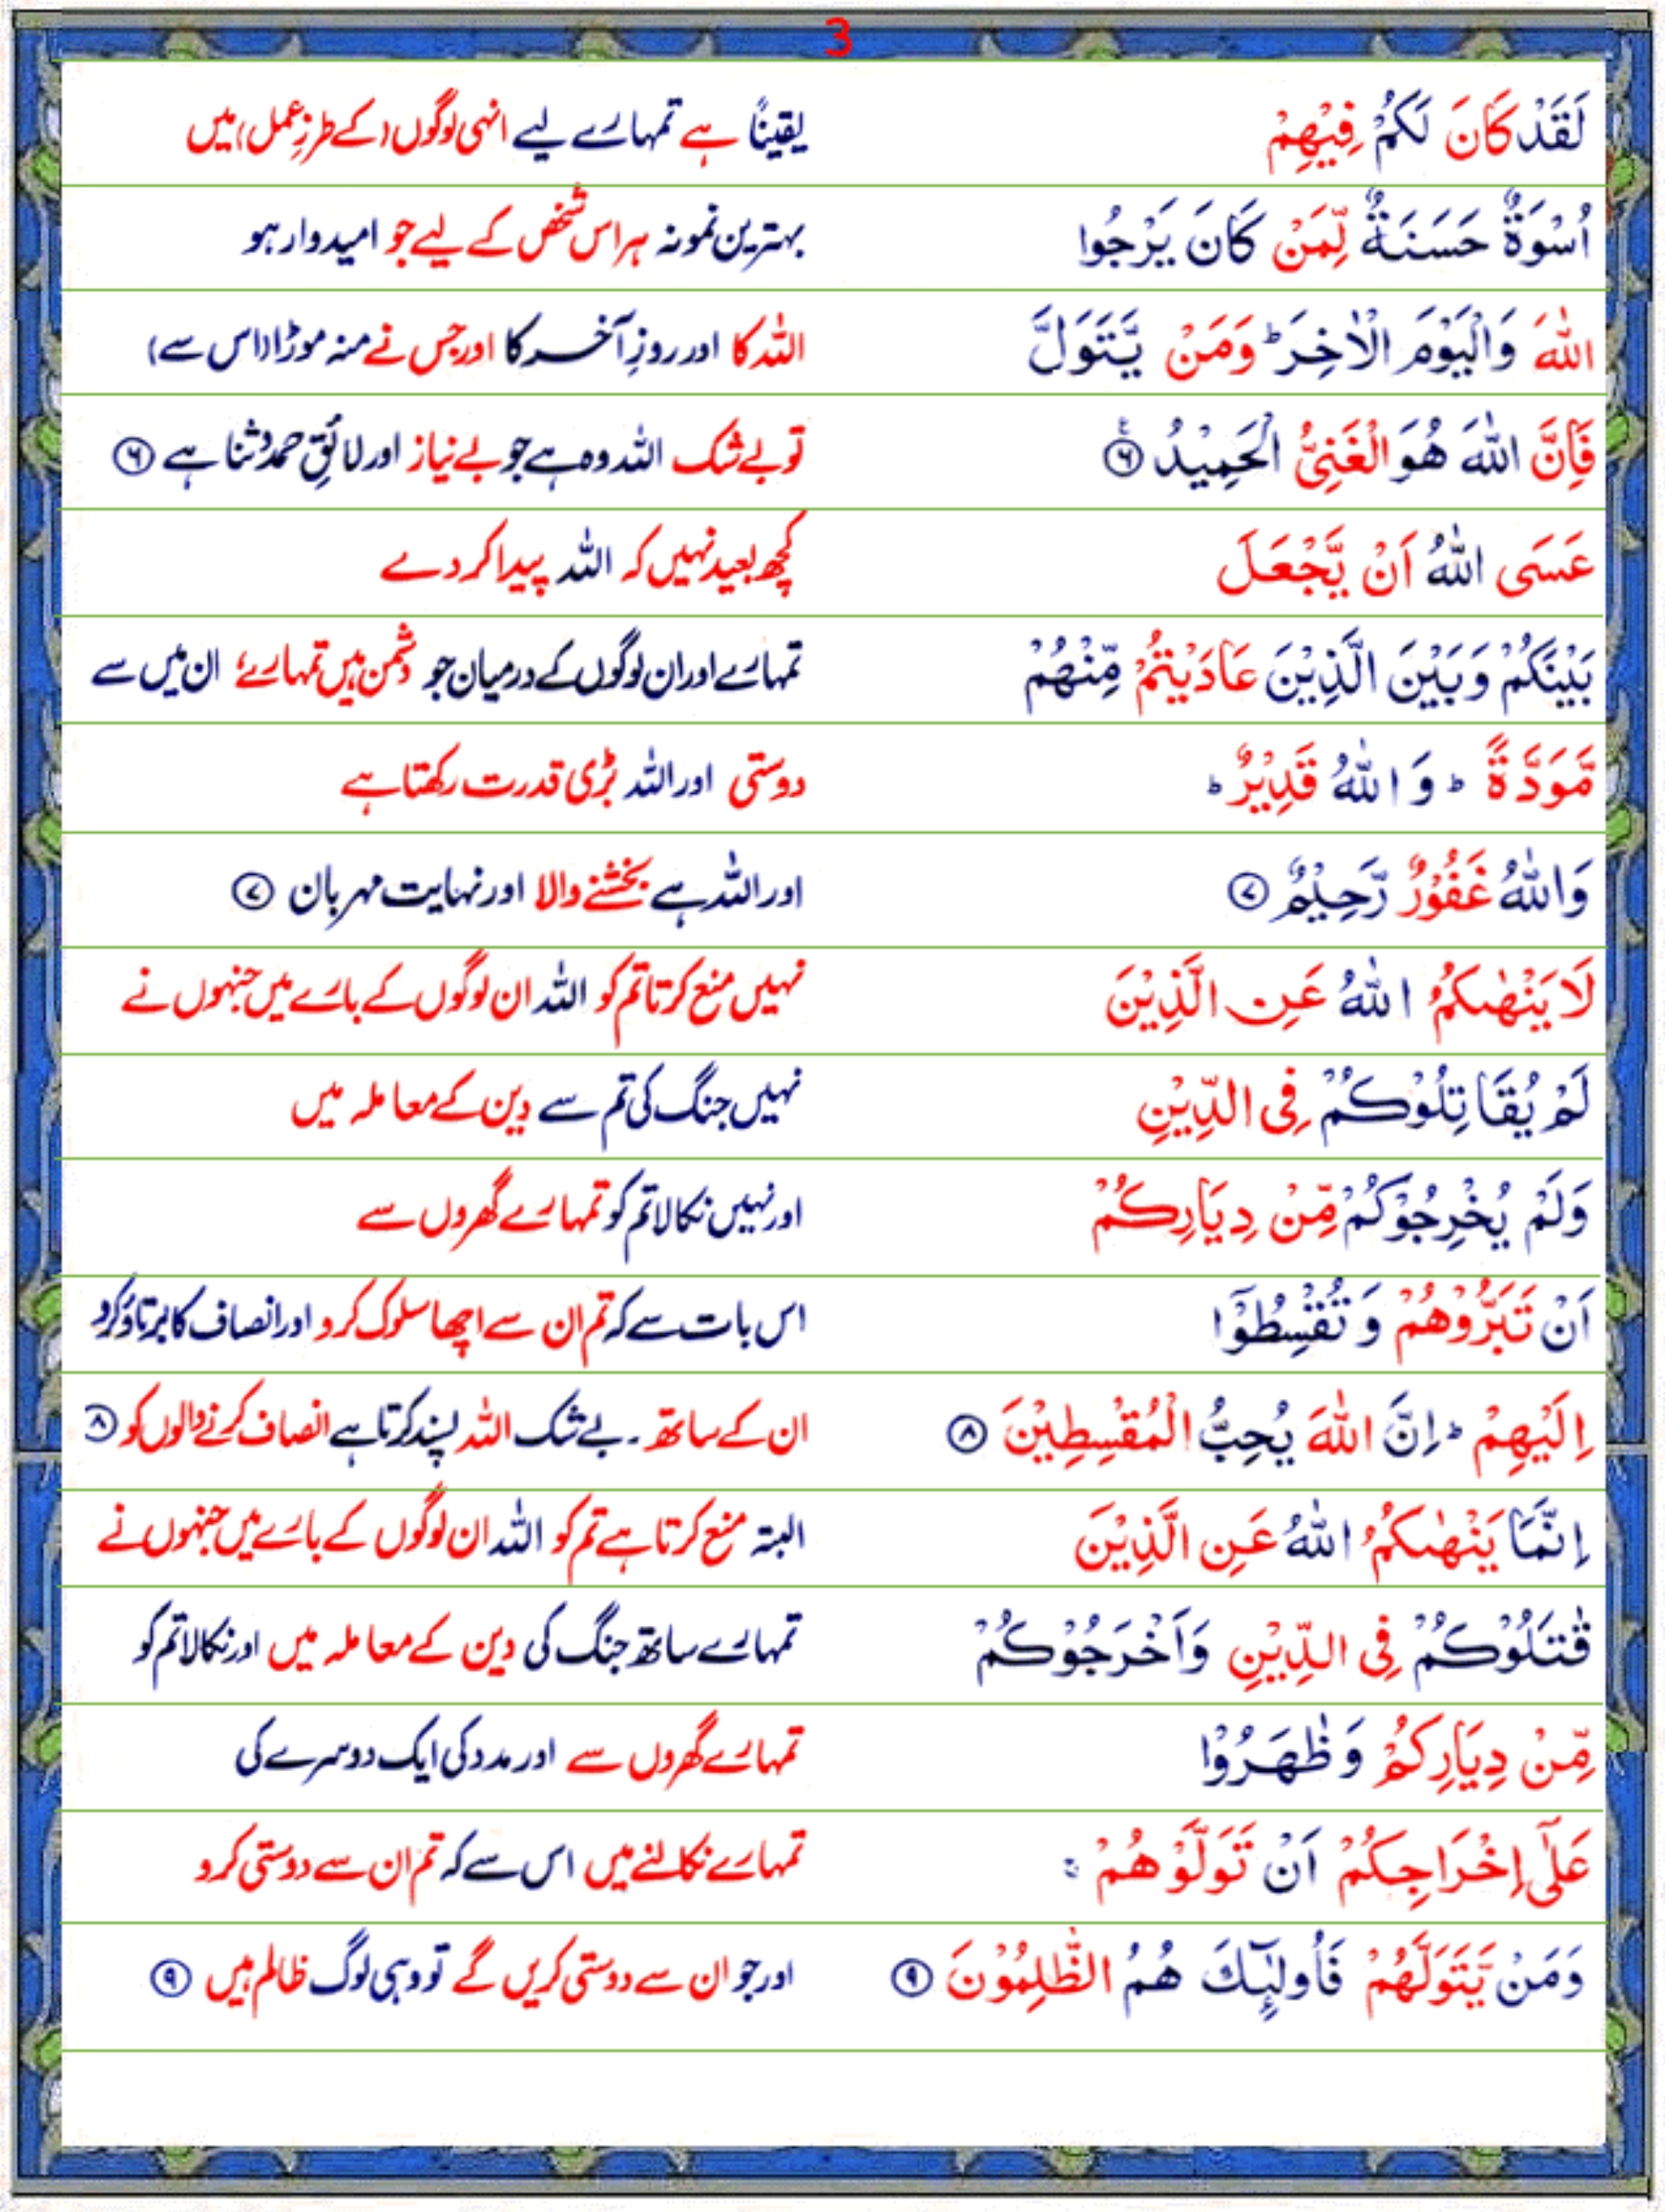 3
لَقَدْ كَانَ لَكُمْ فِيْهِمْ یقیناً ہے تمہارے لیے انہی لوگوں (کے طرزِ عمل) میں
اُسْوَةٌ حَسَنَةٌ لِّمَنْ كَانَ يَرْجُوا بہترین نمونہ ہر اس شخص کے لیے جو امیدوار ہو
اللّٰهَ وَالْيَوْمَ الْاٰخِرَ ؕ وَمَنْ يَّتَوَلَّ اللہ کا اور روزِ آخر کا اور جس نے منہ موڑا (اس سے)
فَاِنَّ اللّٰهَ هُوَ الْغَنِىُّ الْحَمِيْدُ ۶ تو بے شک اللہ وہ ہے جو بے نیاز اور لائقِ حمد و ثنا ہے ۶
عَسَى اللّٰهُ اَنْ يَّجْعَلَ کچھ بعید نہیں کہ اللہ پیدا کر دے
بَيْنَكُمْ وَبَيْنَ الَّذِيْنَ عَادَيْتُمْ مِّنْهُمْ تمہارے اور ان لوگوں کے درمیان جو دشمن ہیں تمہارے، ان میں سے
مَّوَدَّةً ؕ وَاللّٰهُ قَدِيْرٌ ؕ دوستی اور اللہ بڑی قدرت رکھتا ہے
وَاللّٰهُ غَفُوْرٌ رَّحِيْمٌ ۷ اور اللہ ہے بخشنے والا اور نہایت مہربان ۷
لَا يَنْهٰٮكُمُ اللّٰهُ عَنِ الَّذِيْنَ نہیں منع کرتا تم کو اللہ ان لوگوں کے بارے میں جنہوں نے
لَمْ يُقَاتِلُوْكُمْ فِى الدِّيْنِ نہیں جنگ کی تم سے دین کے معاملہ میں
وَلَمْ يُخْرِجُوْكُمْ مِّنْ دِيَارِكُمْ اور نہیں نکالا تم کو تمہارے گھروں سے
اَنْ تَبَرُّوْهُمْ وَ تُقْسِطُوْۤا اس بات سے کہ تم ان سے اچھا سلوک کرو اور انصاف کا برتاؤ کرو
اِلَيْهِمْ ؕ اِنَّ اللّٰهَ يُحِبُّ الْمُقْسِطِيْنَ ۸ ان کے ساتھ ۔ بے شک اللہ پسند کرتا ہے انصاف کرنے والوں کو ۸
اِنَّمَا يَنْهٰٮكُمُ اللّٰهُ عَنِ الَّذِيْنَ البتہ منع کرتا ہے تم کو اللہ ان لوگوں کے بارے میں جنہوں نے
قٰتَلُوْكُمْ فِى الدِّيْنِ وَاَخْرَجُوْكُمْ تمہارے ساتھ جنگ کی دین کے معاملہ میں اور نکالا تم کو
مِّنْ دِيَارِكُمْ وَظٰهَرُوْا تمہارے گھروں سے اور مدد کی ایک دوسرے کی
عَلٰٓى اِخْرَاجِكُمْ اَنْ تَوَلَّوْهُمْ ۚ تمہارے نکالنے میں اس سے کہ تم ان سے دوستی کرو
وَمَنْ يَّتَوَلَّهُمْ فَاُولٰٓئِكَ هُمُ الظّٰلِمُوْنَ ۹ اور جو ان سے دوستی کریں گے تو وہی لوگ ظالم ہیں ۹